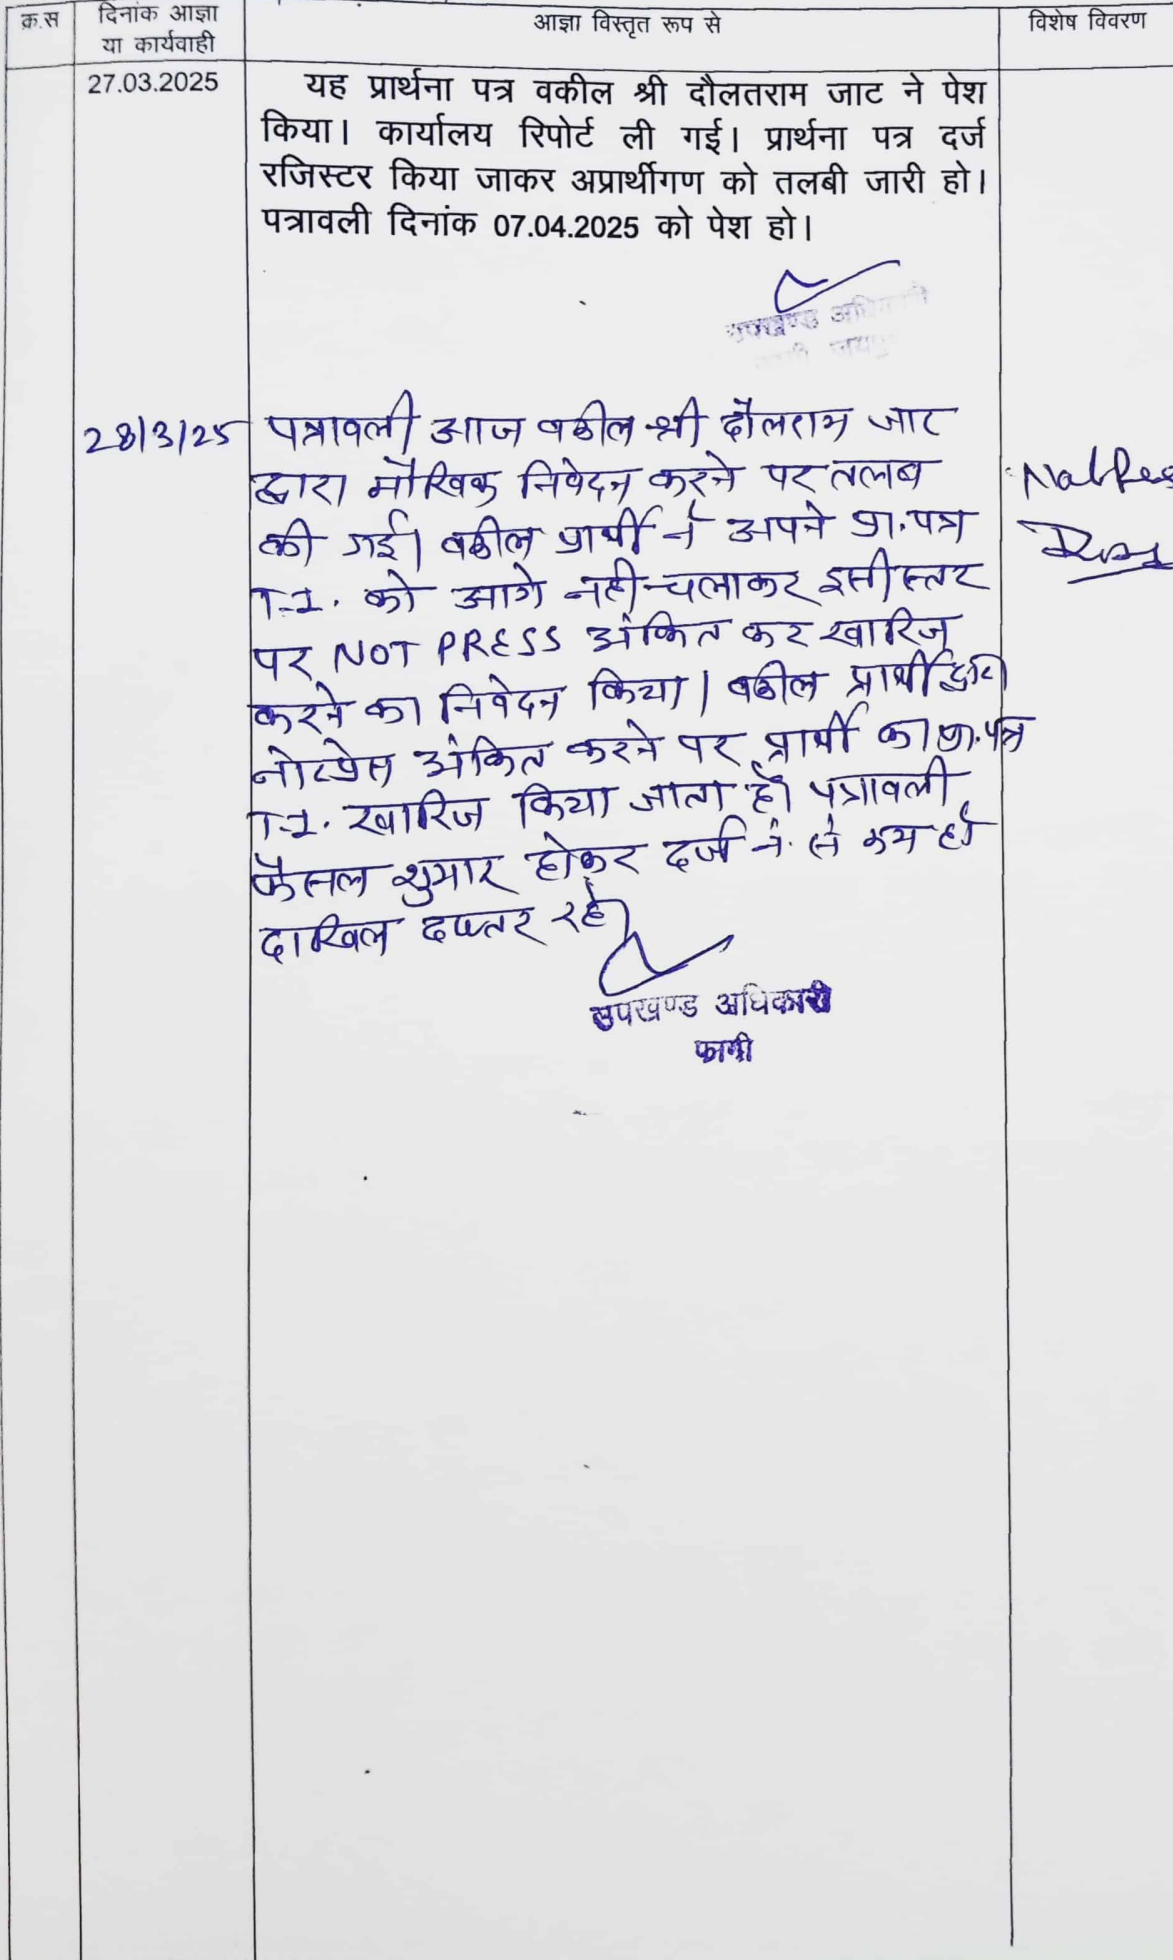 क्र.स
दिनांक आज्ञा
या कार्यवाही
आज्ञा विस्तृत रूप से
विशेष विवरण
27.03.2025
यह प्रार्थना पत्र वकील श्री दौलतराम जाट ने पेश
किया। कार्यालय रिपोर्ट ली गई। प्रार्थना पत्र दर्ज
रजिस्टर किया जाकर अप्रार्थीगण को तलबी जारी हो।
पत्रावली दिनांक 07.04.2025 को पेश हो।
उपखण्ड
28/3/25
पत्रावली आज वकील श्री दौलराम जाट
द्वारा मौखिक निवेदन करने पर तलब
की गई। वकील प्रार्थी ने अपने प्रा.पत्र
T.I. को आगे नही चलाकर इसी स्तर
पर NOT PRESS अंकित कर खारिज
करने का निवेदन किया। वकील प्रार्थी द्वारा
नोटप्रेस अंकित करने पर प्रार्थी का प्रा.पत्र
T.I. खारिज किया जाता है। पत्रावली
फैसल शुमार होकर दर्ज नं. से कम हो
दाखिल दफ्तर रहे।
उपखण्ड अधिकारी
फागी